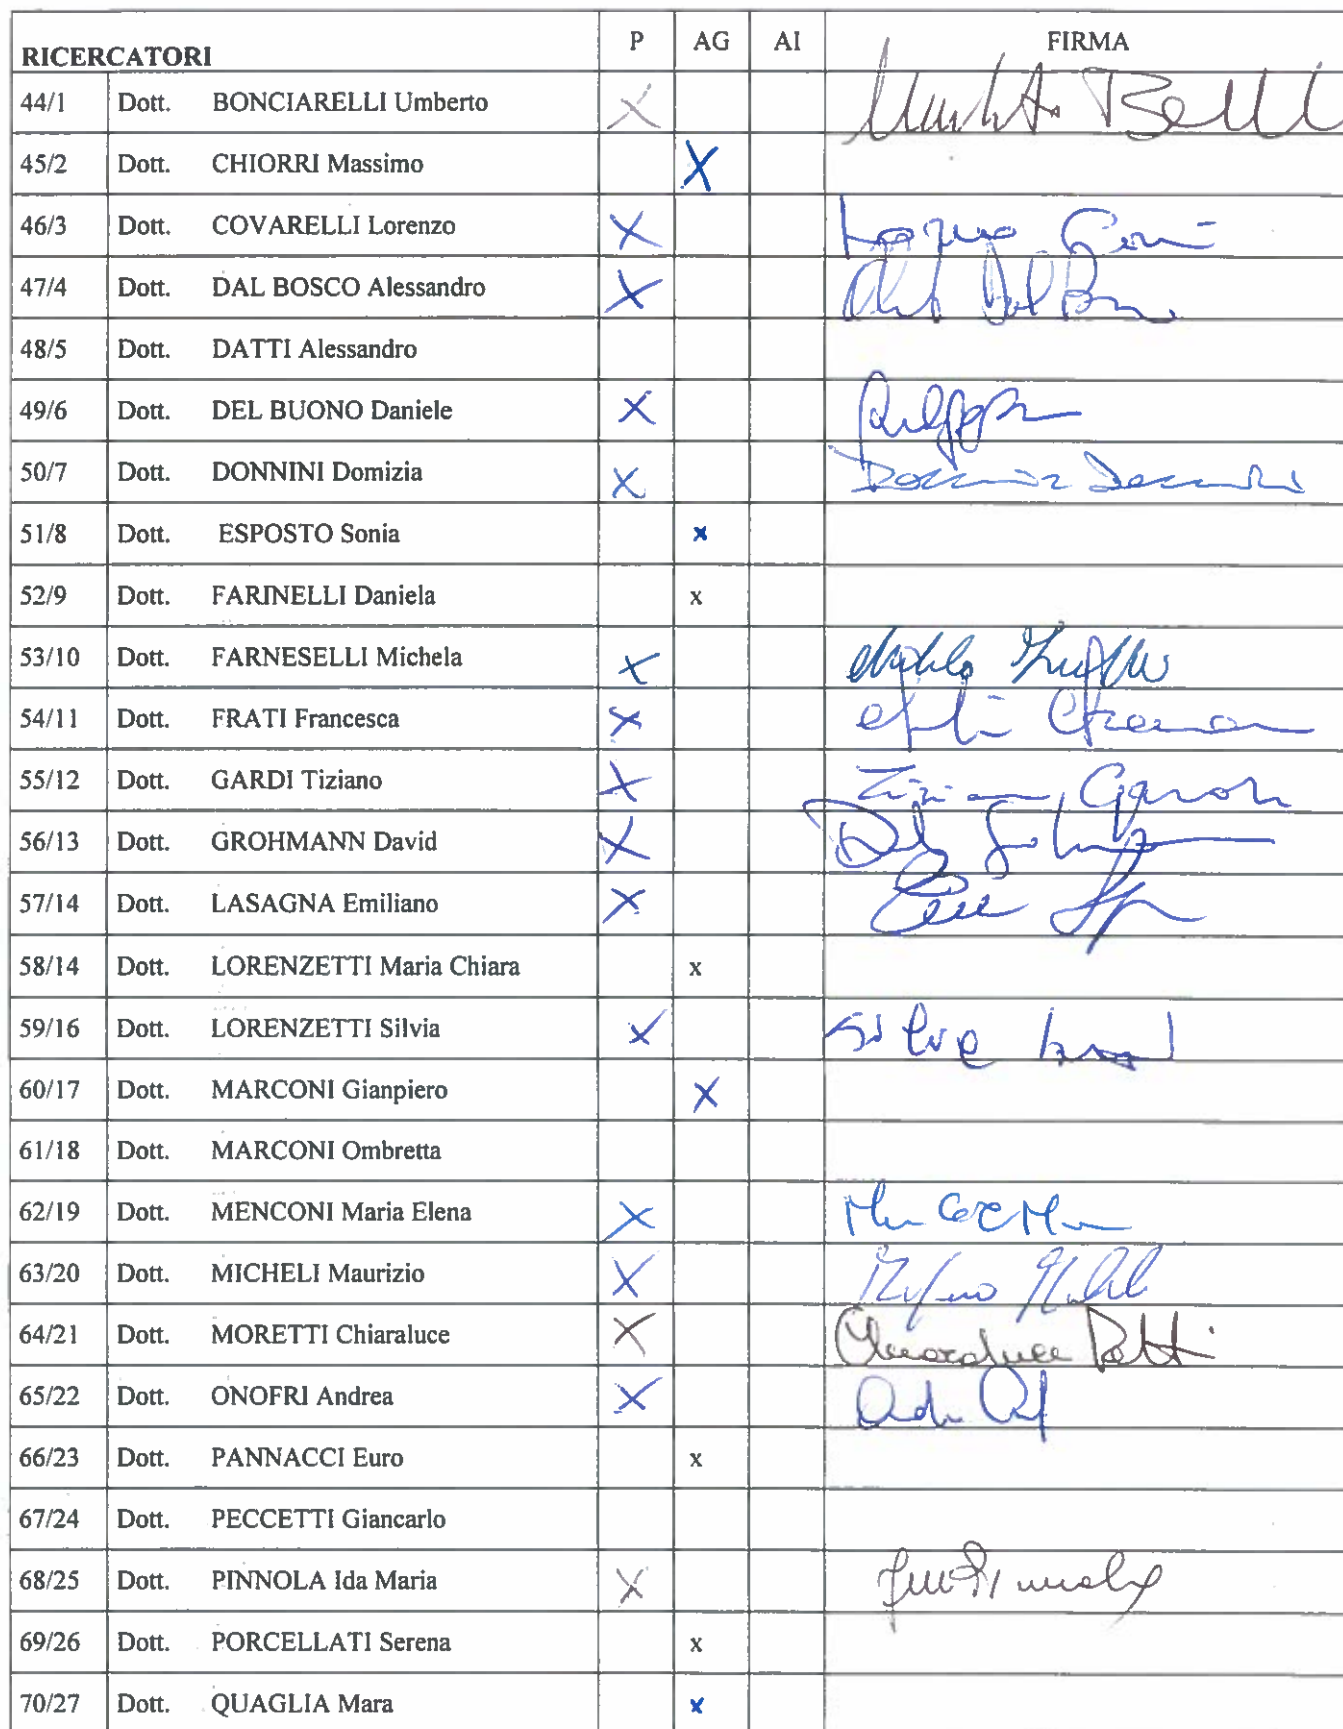 RICERCATORI P AG AI FIRMA
44/1 Dott. BONCIARELLI Umberto X
45/2 Dott. CHIORRI Massimo X
46/3 Dott. COVARELLI Lorenzo X
47/4 Dott. DAL BOSCO Alessandro X
48/5 Dott. DATTI Alessandro
49/6 Dott. DEL BUONO Daniele X
50/7 Dott. DONNINI Domizia X
51/8 Dott. ESPOSTO Sonia x
52/9 Dott. FARINELLI Daniela x
53/10 Dott. FARNESELLI Michela X
54/11 Dott. FRATI Francesca X
55/12 Dott. GARDI Tiziano X
56/13 Dott. GROHMANN David X
57/14 Dott. LASAGNA Emiliano X
58/14 Dott. LORENZETTI Maria Chiara x
59/16 Dott. LORENZETTI Silvia X
60/17 Dott. MARCONI Gianpiero X
61/18 Dott. MARCONI Ombretta
62/19 Dott. MENCONI Maria Elena X
63/20 Dott. MICHELI Maurizio X
64/21 Dott. MORETTI Chiaraluce X
65/22 Dott. ONOFRI Andrea X
66/23 Dott. PANNACCI Euro x
67/24 Dott. PECCETTI Giancarlo
68/25 Dott. PINNOLA Ida Maria X
69/26 Dott. PORCELLATI Serena x
70/27 Dott. QUAGLIA Mara x